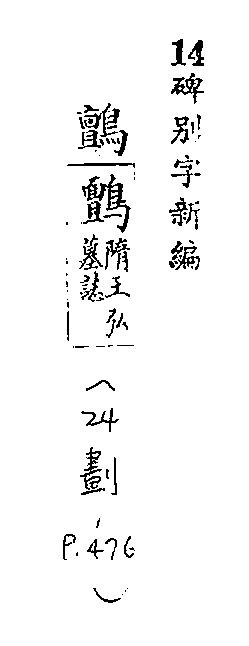 14碑别字新編
鸇
隋王弘
墓誌
(24劃
P.476)